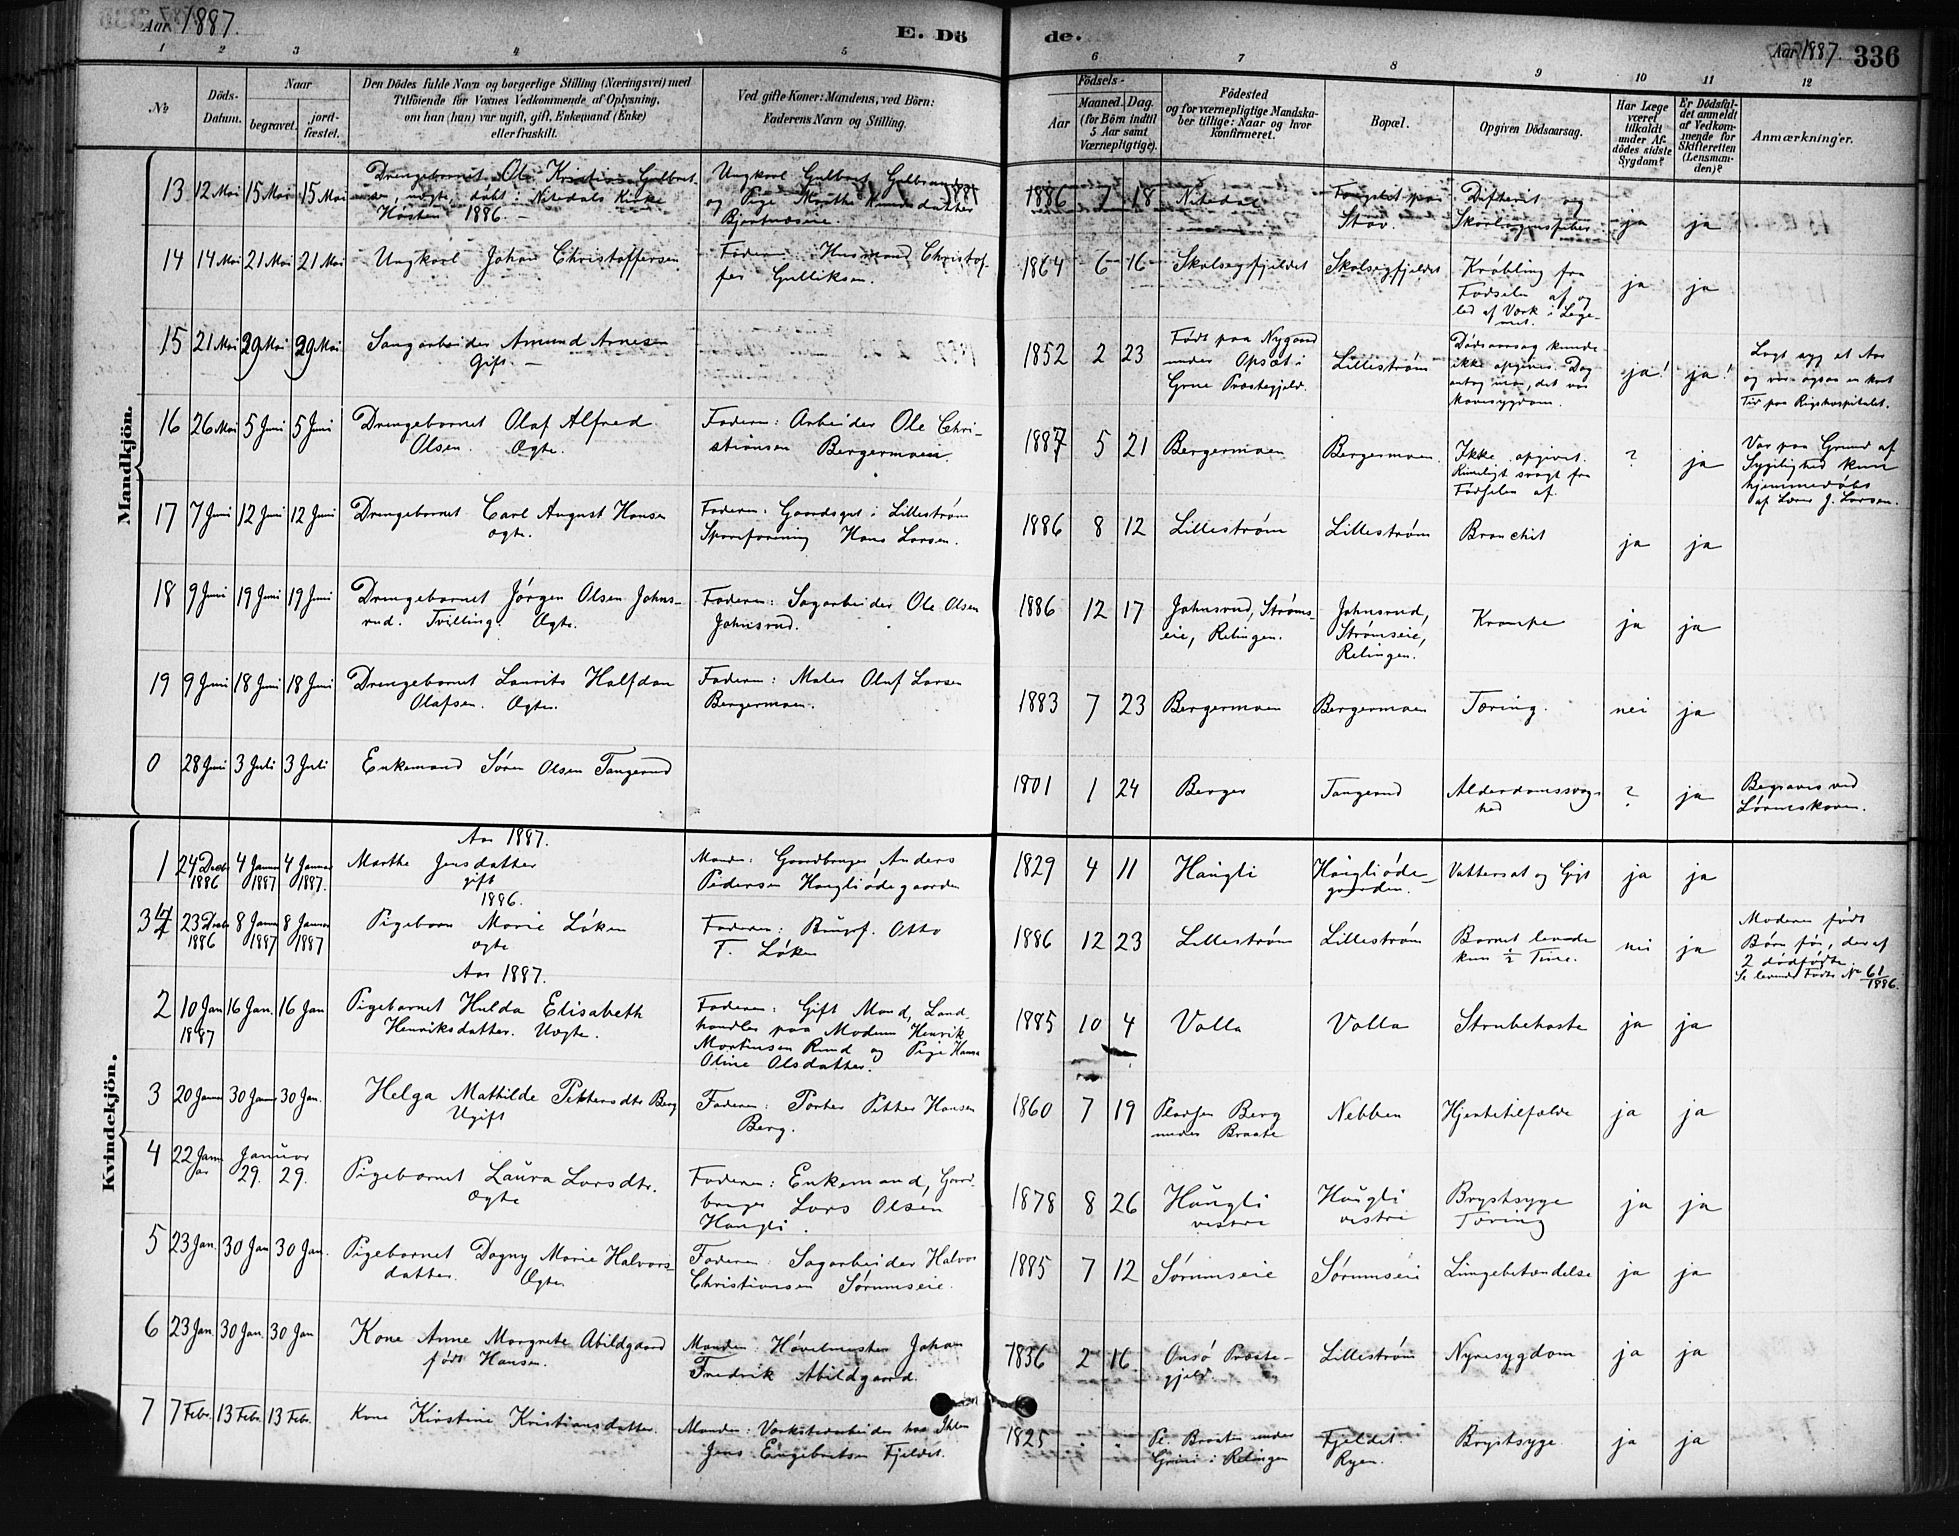 Aar 1887.
E. Dö
de.
Aar 1887.
336
1 2 3 4 5 6 7 8 9 10 11 12
No
Döds-Datum.
Naar
begravet.
jordfæstet.
Den Dödes fulde Navn og borgerlige Stilling (Næringsvei) med
Tilföiende for Voxnes Vedkommende af Oplysning,
om han (hun) var ugift, gift, Enkemand (Enke)
eller fraskilt.
Ved gifte Koner: Mandens, ved Börn:
Faderens Navn og Stilling.
Födsels-
Aar
Maaned. Dag.
(for Börn indtil
5 Aar samt
Værnepligtige).
Födested
og for værnepligtige Mandskaber tillige: Naar og hvor
konfirmeret.
Bopæl.
Opgiven Dödsaarsag.
Har Læge
været
tilkaldt
under Afdödes sidste
Sygdom?
Er Dödsfaldet anmeldt
af Vedkommende for
Skifteretten
(Lensmanden)?
Anmærkninger.
Mandkjön.
13 12 Mai 15 Mai 15 Mai Drengebarnet Ole Kristian Gulbrandsen, uægte, døbt i Nitedals Kirke Høsten 1886. – Ungkarl Gulbrand og Pige Marthe 1886 7 18 Nitedal Stav. Difterit og Skarlagensfeber ja ja
14 14 Mai 21 Mai 21 Mai Ungkarl Johan Christoffersen Faderen: Husmand Christoffer Gulliksen. 1864 6 16 Skolsegfjeldet Skolsegfjeldet Krøbling fra Fødselen af og led af Værk i Legemet. ja ja
15 21 Mai 29 Mai 29 Mai Saugarbeider Amund Arnesen Gift. – 1852 2 23 Født paa Nygaard under Opset i Grue Præstegjeld. Lillestrøm Dødsaarsag kunde ikke opgives. Dog antog man, det var Mavesygdom. ja! ja! Lagt syg et Aar og var ogsaa en kort Tid paa Rigshospitalet.
16 26 Mai 5 Juni 5 Juni Drengebarnet Olaf Alfred Olsen. Ægte. Faderen: Arbeider Ole Christiansen Bergermoen. 1887 5 21 Bergermoen Bergermoen Ikke opgivet. Rimeligt svagt fra Fødselen af. ? ja Var paa Grund af Sygelighed kun hjemmedøbt af Lærer J. Larsen.
17 7 Juni 12 Juni 12 Juni Drengebarnet Carl August Hansen ægte. Faderen: Gaardsgut i Lillestrøm Spareforening Hans Larsen. 1886 8 12 Lillestrøm Lillestrøm Bronchit ja ja
18 9 Juni 19 Juni 19 Juni Drengebarnet Jørgen Olsen Johnsrud. Tvilling. Ægte. Faderen: Sagarbeider Ole Olsen Johnsrud. 1886 12 17 Johnsrud, Strømseie, Relingen. Johnsrud, Strømseie, Relingen. Krampe ja ja
19 9 Juni 18 Juni 18 Juni Drengebarnet Laurits Halfdan Olafsen. Ægte. Faderen: Maler Olaf Larsen Bergermoen. 1883 7 23 Bergermoen Bergermoen Tæring. nei ja
0 28 Juni 3 Juli 3 Juli Enkemand Søren Olsen Tangerud 1801 1 24 Berger Tangerud Alderdomssvaghed ? ja Begraves ved Lørenskoven.
Kvindekjön.
Aar 1887.
1 24 Decb 1886 4 Januar 1887 4 Januar 1887. Marthe Jensdatter gift Manden: Gaardbruger Anders Pedersen Haugliødegaarden 1829 4 11 Haugli Haugliødegaarden. Vattersot og Gigt ja ja
1886.
34 23 Decb 1886 8 Januar 1887 8 Januar 1887 Pigebarn Marie Løken ægte Faderen: Otto T. Løken 1886 12 23 Lillestrøm Lillestrøm Barnet levede kun ½ Time. nei ja Moderen født Børn før, deraf 2 dødfødte. Se levende Fødte No 61/1886.
Aar 1887.
2 10 Jan 1887 16 Jan. 16 Jan Pigebarnet Hulda Elisabeth Henriksdatter. Uægte. Faderen: Gift Mand, Landhandler paa Modum Henrik Mortensen Rud og Pige Hanna Oline Olsdatter. 1885 10 4 Volla Volla Strubehoste ja ja
3 20 Januar 30 Januar 30 Jan. Helga Mathilde Pettersdtr Berg Ugift Faderen: Porter Petter Hansen Berg. 1860 7 19 Pladsen Berg under Braate Nebben Hjertetilfælde ja ja
4 22 Januar Januar 29. 29. Pigebarnet Laura Larsdtr. Ægte Faderen: Enkemand, Gaardbruger Lars Olsen Haugli. 1878 8 26 Haugli vestre Haugli vestri Brystsyge Tæring ja ja
5 23 Jan. 30 Jan 30 Jan. Pigebarnet Dagny Marie Halvorsdatter. Ægte Faderen: Sagarbeider Halvor Christiansen Sørumseie. 1885 7 12 Sørumseie Sørumseie Lungebetændelse ja ja
6 23 Jan. 30 Jan. 30 Jan Kone Anne Margrete Abildgaard født Hansen. Manden: Høvelmester Johan Fredrik Abildgaard. 1836 2 16 Onsø Præstegjeld Lillestrøm Nyresygdom ja ja
7 7 Febr. 13 Febr. 13 Febr. Kone Kirstine Kristiansdatter. Manden: Værkstedarbeider hos Jens Engebretsen Fjeldet. 1825 . . Pl. Braaten under Grini i Relingen Fjeldet Ryen. Brystsyge ja ja